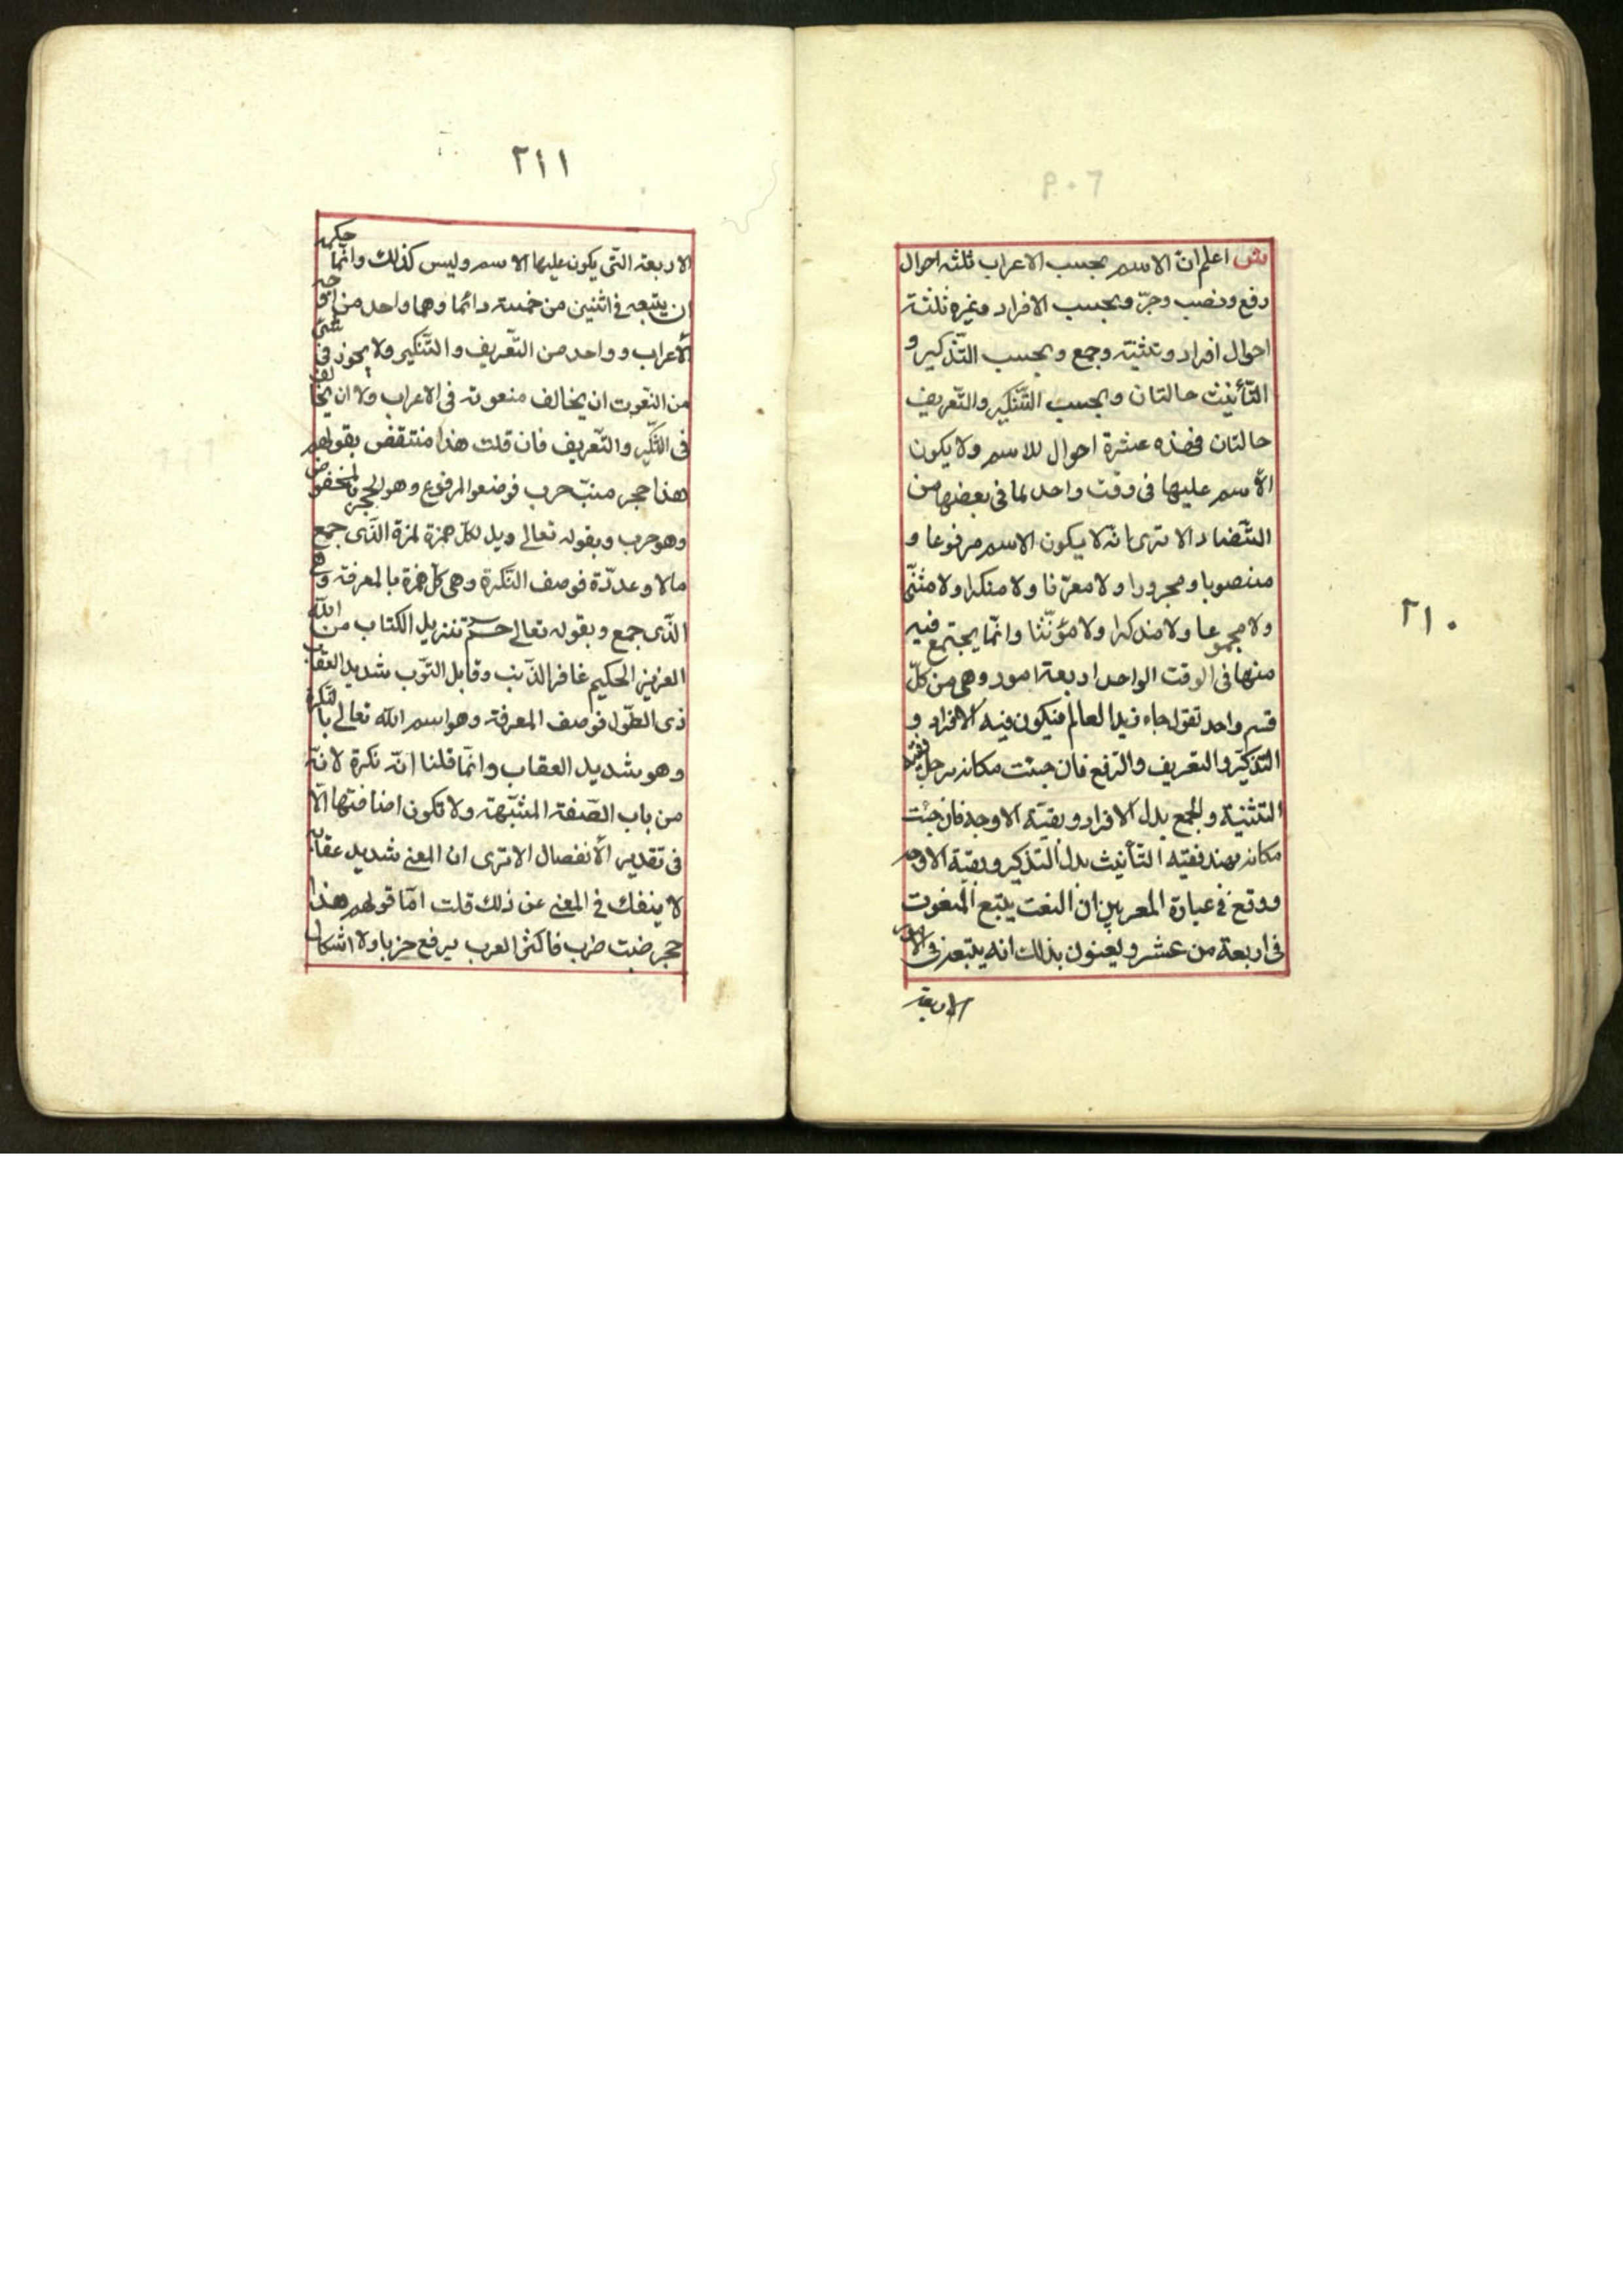 ٢١٠
ش اعلم ان الاسم بحسب الاعراب ثلثه احوال
رفع ونصب وجرّ وبحسب الافراد وغيره ثلثة
احوال افراد وتثنية وجمع وبحسب التّذكير و
التّأنيث حالتان وبحسب التّنكير والتّعريف
حالتان فهذه عشرة احوال للاسم ولا يكون
الأسم عليها فى وقت واحد لما فى بعضها من
التّضاد الا ترى انّه لا يكون الاسم مرفوعا و
منصوبا ومجرورا ولا معرّفا ولا منكرا ولا مثنّى
ولا مجموعا ولا مذكرا ولا مؤنّثا وانّما يجتمع فيه
منها فى الوقت الواحد اربعة امور وهى من كلّ
قسم واحد تقول جاء زيد العالم فيكون فيه الافراد و
التّذكير والتعريف والرّفع فان جئت مكانه برجل ففيه
التثنية والجمع بدل الافراد وبقيّة الاوجه فان جئت
مكانه بهند ففيه التأنيث بدل التذكير وبقيّة الاوجه
ووقع فى عبارة المعربين ان النعت يتبع المنعوت
فى اربعة من عشر ويعنون بذلك انه يتبعه فى الامور
الاربعة
٢١١
الاربعة التّى يكون عليها الاسم وليس كذلك وانّما حكمه
ان يتبعه فى اثنين من خمسة دائما وهما واحد من اوجه
الأعراب وواحد من التّعريف والتّنكير ولا يجوز فى شئ
من النعوت ان يخالف منعوته فى الاعراب ولا ان يخالفه
فى التّنكير والتّعريف فان قلت هذا منتقض بقولهم
هذا حجر ضبّ خرب فوضعوا المرفوع وهو الحجر بالمخفوض
وهو خرب وبقوله تعالى ويل لكلّ همزة لمزة الّذى جمع
مالا وعدّدة فوصف النّكرة وهى كلّ همزة بالمعرفة وهى
الّذى جمع وبقوله تعالى حم تنزيل الكتاب من الله
العزيز الحكيم غافر الذّنب وقابل التّوب شديد العقاب
ذى الطّول فوصف المعرفة وهو اسم الله تعالى بالنّكرة
وهو شديد العقاب وانّما قلنا انّه نكرة لانّه
من باب الصّفة المشبّهة ولا تكون اضافتها الّا
فى تقدير الأنفصال الا ترى ان المعنى شديد عقابه
لا ينفك فى المعنى عن ذلك قلت امّا قولهم هذا
حجر ضبّ خرب فاكثر العرب يرفع خربا ولا اشكال